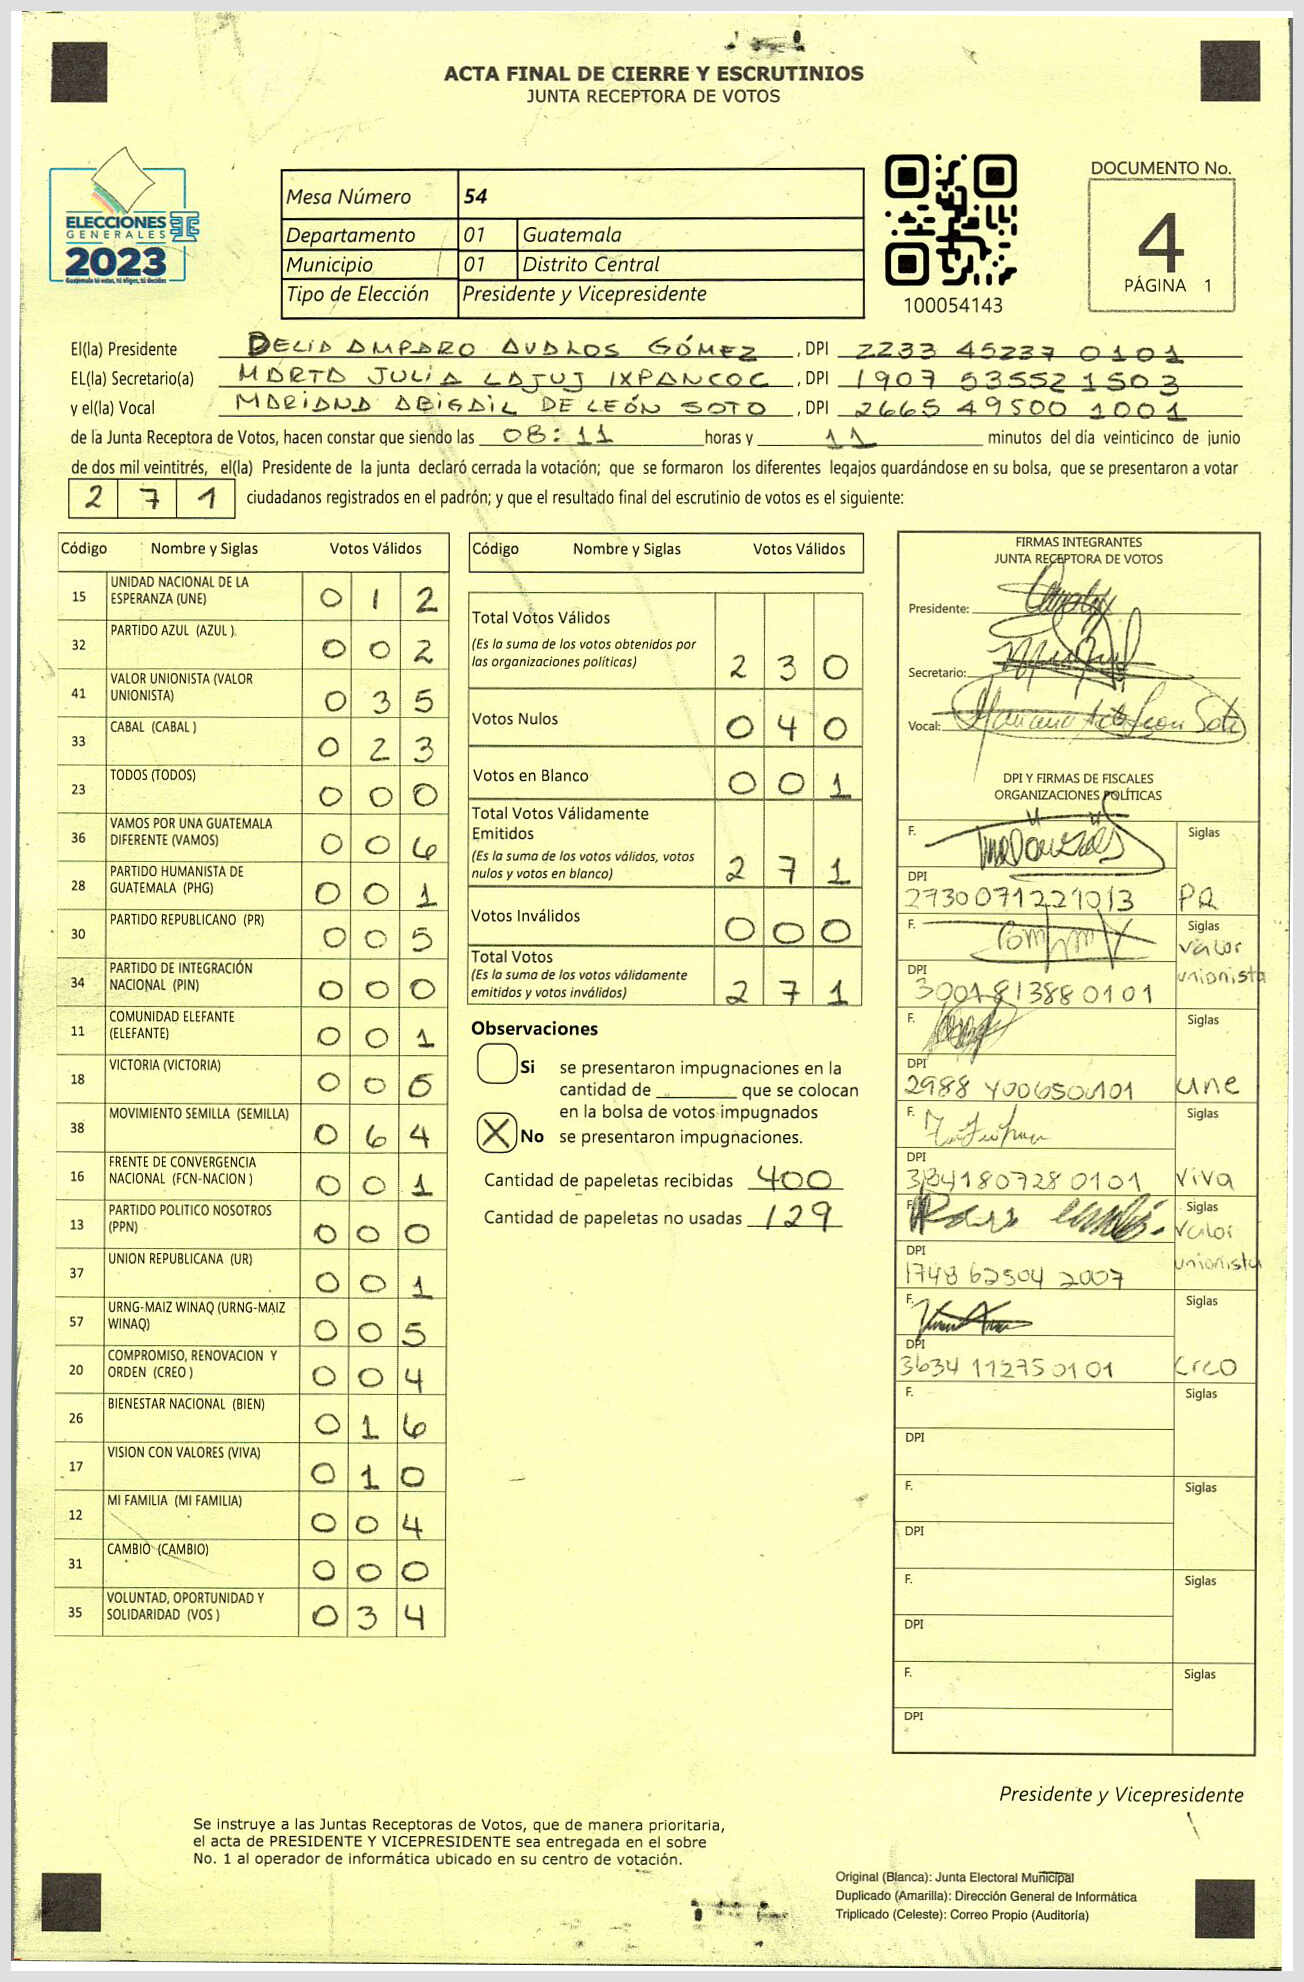 ACTA FINAL DE CIERRE Y ESCRUTINIOS
JUNTA RECEPTORA DE VOTOS
ELECCIONES
GENERALES
2023
Guatemala tú votas, tú eliges, tú decides
Mesa Número 54
Departamento 01 Guatemala
Municipio 01 Distrito Central
Tipo de Elección Presidente y Vicepresidente
100054143
DOCUMENTO No.
4
PÁGINA 1
El(la) Presidente DELIA AMPARO AVALOS GÓMEZ, DPI 2233 45237 0101
EL(la) Secretario(a) MARTA JULIA LAJUJ IXPANCOC, DPI 1907 53552 1503
y el(la) Vocal MARIANA ABIGAIL DE LEÓN SOTO, DPI 2665 49500 1001
de la Junta Receptora de Votos, hacen constar que siendo las 08:11 horas y 11 minutos del día veinticinco de junio
de dos mil veintitrés, el(la) Presidente de la junta declaró cerrada la votación; que se formaron los diferentes legajos guardándose en su bolsa, que se presentaron a votar
2 7 1 ciudadanos registrados en el padrón; y que el resultado final del escrutinio de votos es el siguiente:
Código Nombre y Siglas Votos Válidos
15 UNIDAD NACIONAL DE LA
ESPERANZA (UNE) 0 1 2
32 PARTIDO AZUL (AZUL ) 0 0 2
41 VALOR UNIONISTA (VALOR
UNIONISTA) 0 3 5
33 CABAL (CABAL ) 0 2 3
23 TODOS (TODOS) 0 0 0
36 VAMOS POR UNA GUATEMALA
DIFERENTE (VAMOS) 0 0 6
28 PARTIDO HUMANISTA DE
GUATEMALA (PHG) 0 0 1
30 PARTIDO REPUBLICANO (PR) 0 0 5
34 PARTIDO DE INTEGRACIÓN
NACIONAL (PIN) 0 0 0
11 COMUNIDAD ELEFANTE
(ELEFANTE) 0 0 1
18 VICTORIA (VICTORIA) 0 0 6
38 MOVIMIENTO SEMILLA (SEMILLA) 0 6 4
16 FRENTE DE CONVERGENCIA
NACIONAL (FCN-NACION ) 0 0 1
13 PARTIDO POLITICO NOSOTROS
(PPN) 0 0 0
37 UNION REPUBLICANA (UR) 0 0 1
57 URNG-MAIZ WINAQ (URNG-MAIZ
WINAQ) 0 0 5
20 COMPROMISO, RENOVACION Y
ORDEN (CREO ) 0 0 4
26 BIENESTAR NACIONAL (BIEN) 0 1 6
17 VISION CON VALORES (VIVA) 0 1 0
12 MI FAMILIA (MI FAMILIA) 0 0 4
31 CAMBIO (CAMBIO) 0 0 0
35 VOLUNTAD, OPORTUNIDAD Y
SOLIDARIDAD (VOS ) 0 3 4
Código Nombre y Siglas Votos Válidos
Total Votos Válidos
(Es la suma de los votos obtenidos por
las organizaciones políticas) 2 3 0
Votos Nulos 0 4 0
Votos en Blanco 0 0 1
Total Votos Válidamente
Emitidos
(Es la suma de los votos válidos, votos
nulos y votos en blanco) 2 7 1
Votos Inválidos 0 0 0
Total Votos
(Es la suma de los votos válidamente
emitidos y votos inválidos) 2 7 1
Observaciones
Si se presentaron impugnaciones en la
cantidad de ________ que se colocan
en la bolsa de votos impugnados
X No se presentaron impugnaciones.
Cantidad de papeletas recibidas 400
Cantidad de papeletas no usadas 129
FIRMAS INTEGRANTES
JUNTA RECEPTORA DE VOTOS
Presidente:
Secretario:
Vocal:
DPI Y FIRMAS DE FISCALES
ORGANIZACIONES POLÍTICAS
F. Siglas
DPI
2730071221013 PR
F. Siglas
Valor
DPI unionista
3001813880101
F. Siglas
DPI
2988 400650101 une
F. Siglas
DPI
3041807280101 Viva
F. Siglas
Valor
DPI unionista
1748 62504 2007
F. Siglas
DPI
3634 11275 0101 Creo
F. Siglas
DPI
F. Siglas
DPI
F. Siglas
DPI
F. Siglas
DPI
Presidente y Vicepresidente
Se instruye a las Juntas Receptoras de Votos, que de manera prioritaria,
el acta de PRESIDENTE Y VICEPRESIDENTE sea entregada en el sobre
No. 1 al operador de informática ubicado en su centro de votación.
Original (Blanca): Junta Electoral Municipal
Duplicado (Amarilla): Dirección General de Informática
Triplicado (Celeste): Correo Propio (Auditoría)